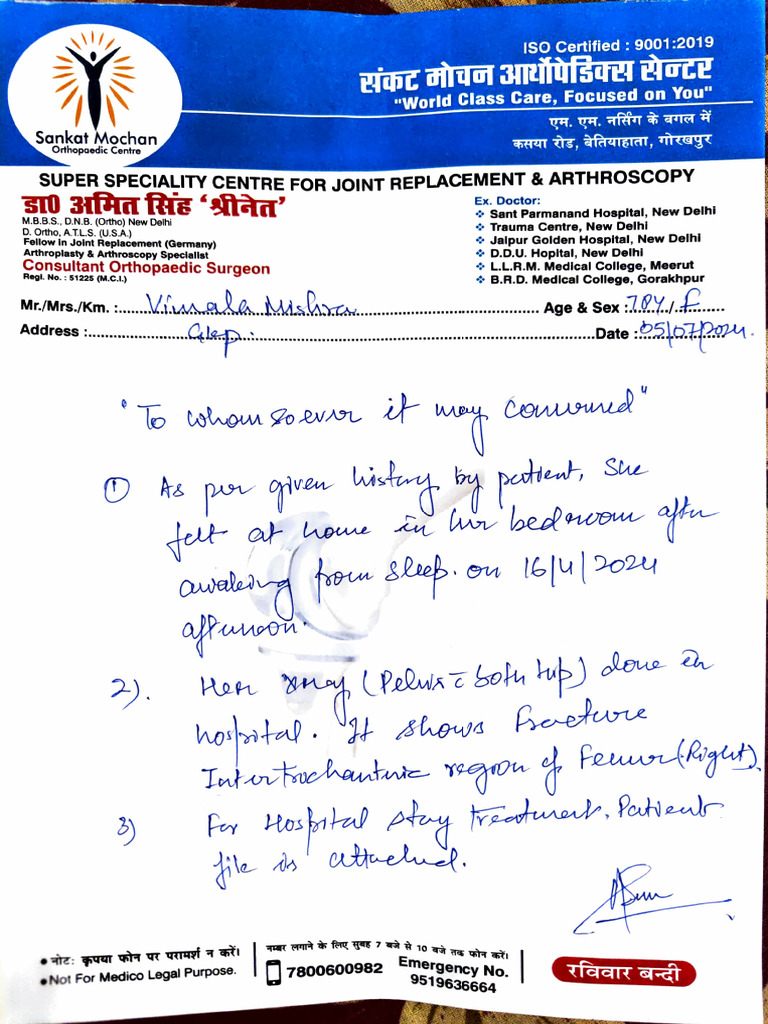 ISO Certified : 9001:2019
संकट मोचन आर्थोपेडिक्स सेन्टर
"World Class Care, Focused on You"
एम. एम. नर्सिंग के बगल में
कसया रोड, बेतियाहाता, गोरखपुर
Sankat Mochan
Orthopaedic Centre
SUPER SPECIALITY CENTRE FOR JOINT REPLACEMENT & ARTHROSCOPY
डा0 अमित सिंह 'श्रीनेत'
M.B.B.S., D.N.B. (Ortho) New Delhi
D. Ortho, A.T.L.S. (U.S.A.)
Fellow in Joint Replacement (Germany)
Arthroplasty & Arthroscopy Specialist
Consultant Orthopaedic Surgeon
Regi. No. : 51225 (M.C.I.)
Ex. Doctor:
Sant Parmanand Hospital, New Delhi
Trauma Centre, New Delhi
Jaipur Golden Hospital, New Delhi
D.D.U. Hopital, New Delhi
L.L.R.M. Medical College, Meerut
B.R.D. Medical College, Gorakhpur
Mr./Mrs./Km. : Vimala Mishra Age & Sex : 78Y / F
Address : Gkp. Date : 05/07/2024
"To whomsoever it may conurned"
① As per given history by patient, She
felt at home in her bedroom after
awakening from sleep. on 16/4/2024
afternoon.
2). Her xray (Pelvis c̄ both hip) done in
hospital. It shows fracture
Intertrochanteric region of Femur (Right).
3) For Hospital stay treatment, Patient
file is attached.
• नोट: कृपया फोन पर परामर्श न करें।
• Not For Medico Legal Purpose.
नम्बर लगाने के लिए सुबह 7 बजे से 10 बजे तक फोन करें।
7800600982
Emergency No.
9519636664
रविवार बन्दी